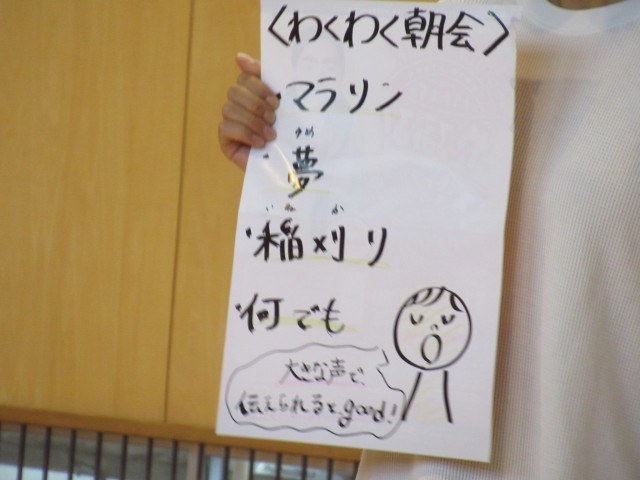 〈わくわく朝会〉
・マラソン
ゆめ
・夢
いねか
・稲刈り
・何でも
大きな声で、
伝えられるとgood!